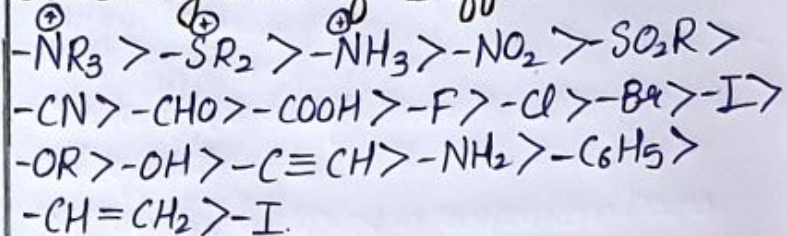 -N⊕R₃ > -S⊕R₂ > -N⊕H₃ > -NO₂ > -SO₂R >
-CN > -CHO > -COOH > -F > -Cl > -Br > -I >
-OR > -OH > -C≡CH > -NH₂ > -C₆H₅ >
-CH=CH₂ > -I.